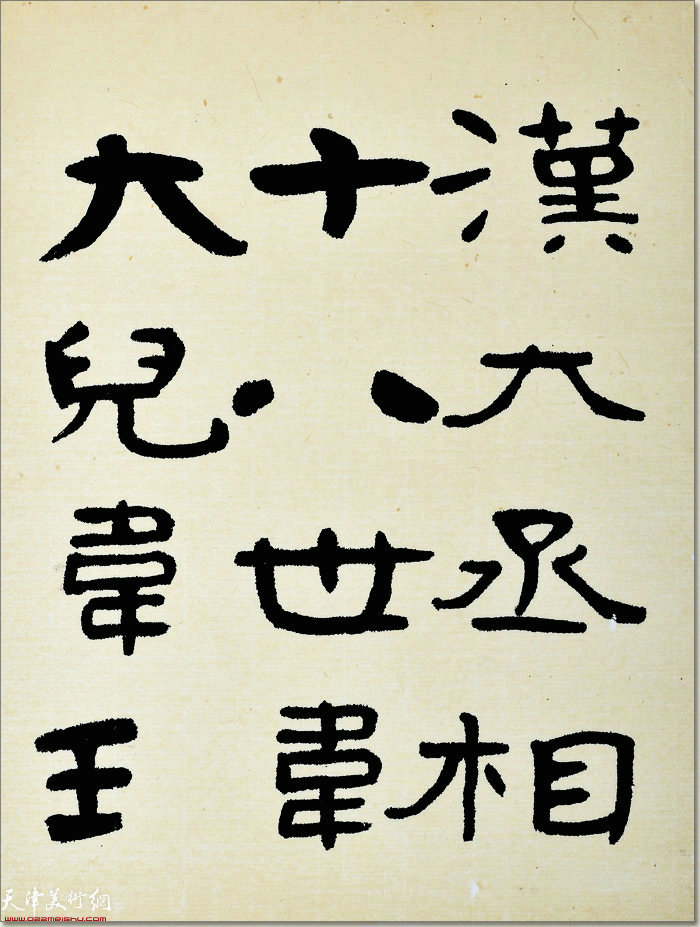 漢大丞相
十八世韋
大兒韋王
天津美術網
www.022meishu.com